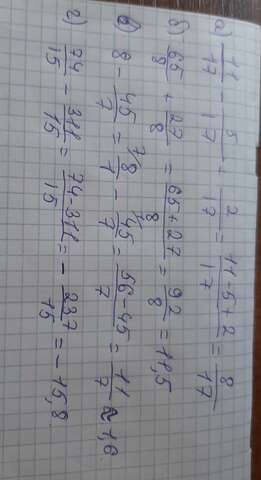 а) 11/17 - 5/17 + 2/17 = 11-5+2/17 = 8/17
б) 65/8 + 27/8 = 65+27/8 = 92/8 = 11,5
в) 8 - 45/7 = 8/1 - 45/7 = 56-45/7 = 11/7 ≈ 1,6
г) 74/15 - 311/15 = 74-311/15 = - 237/15 = -15,8